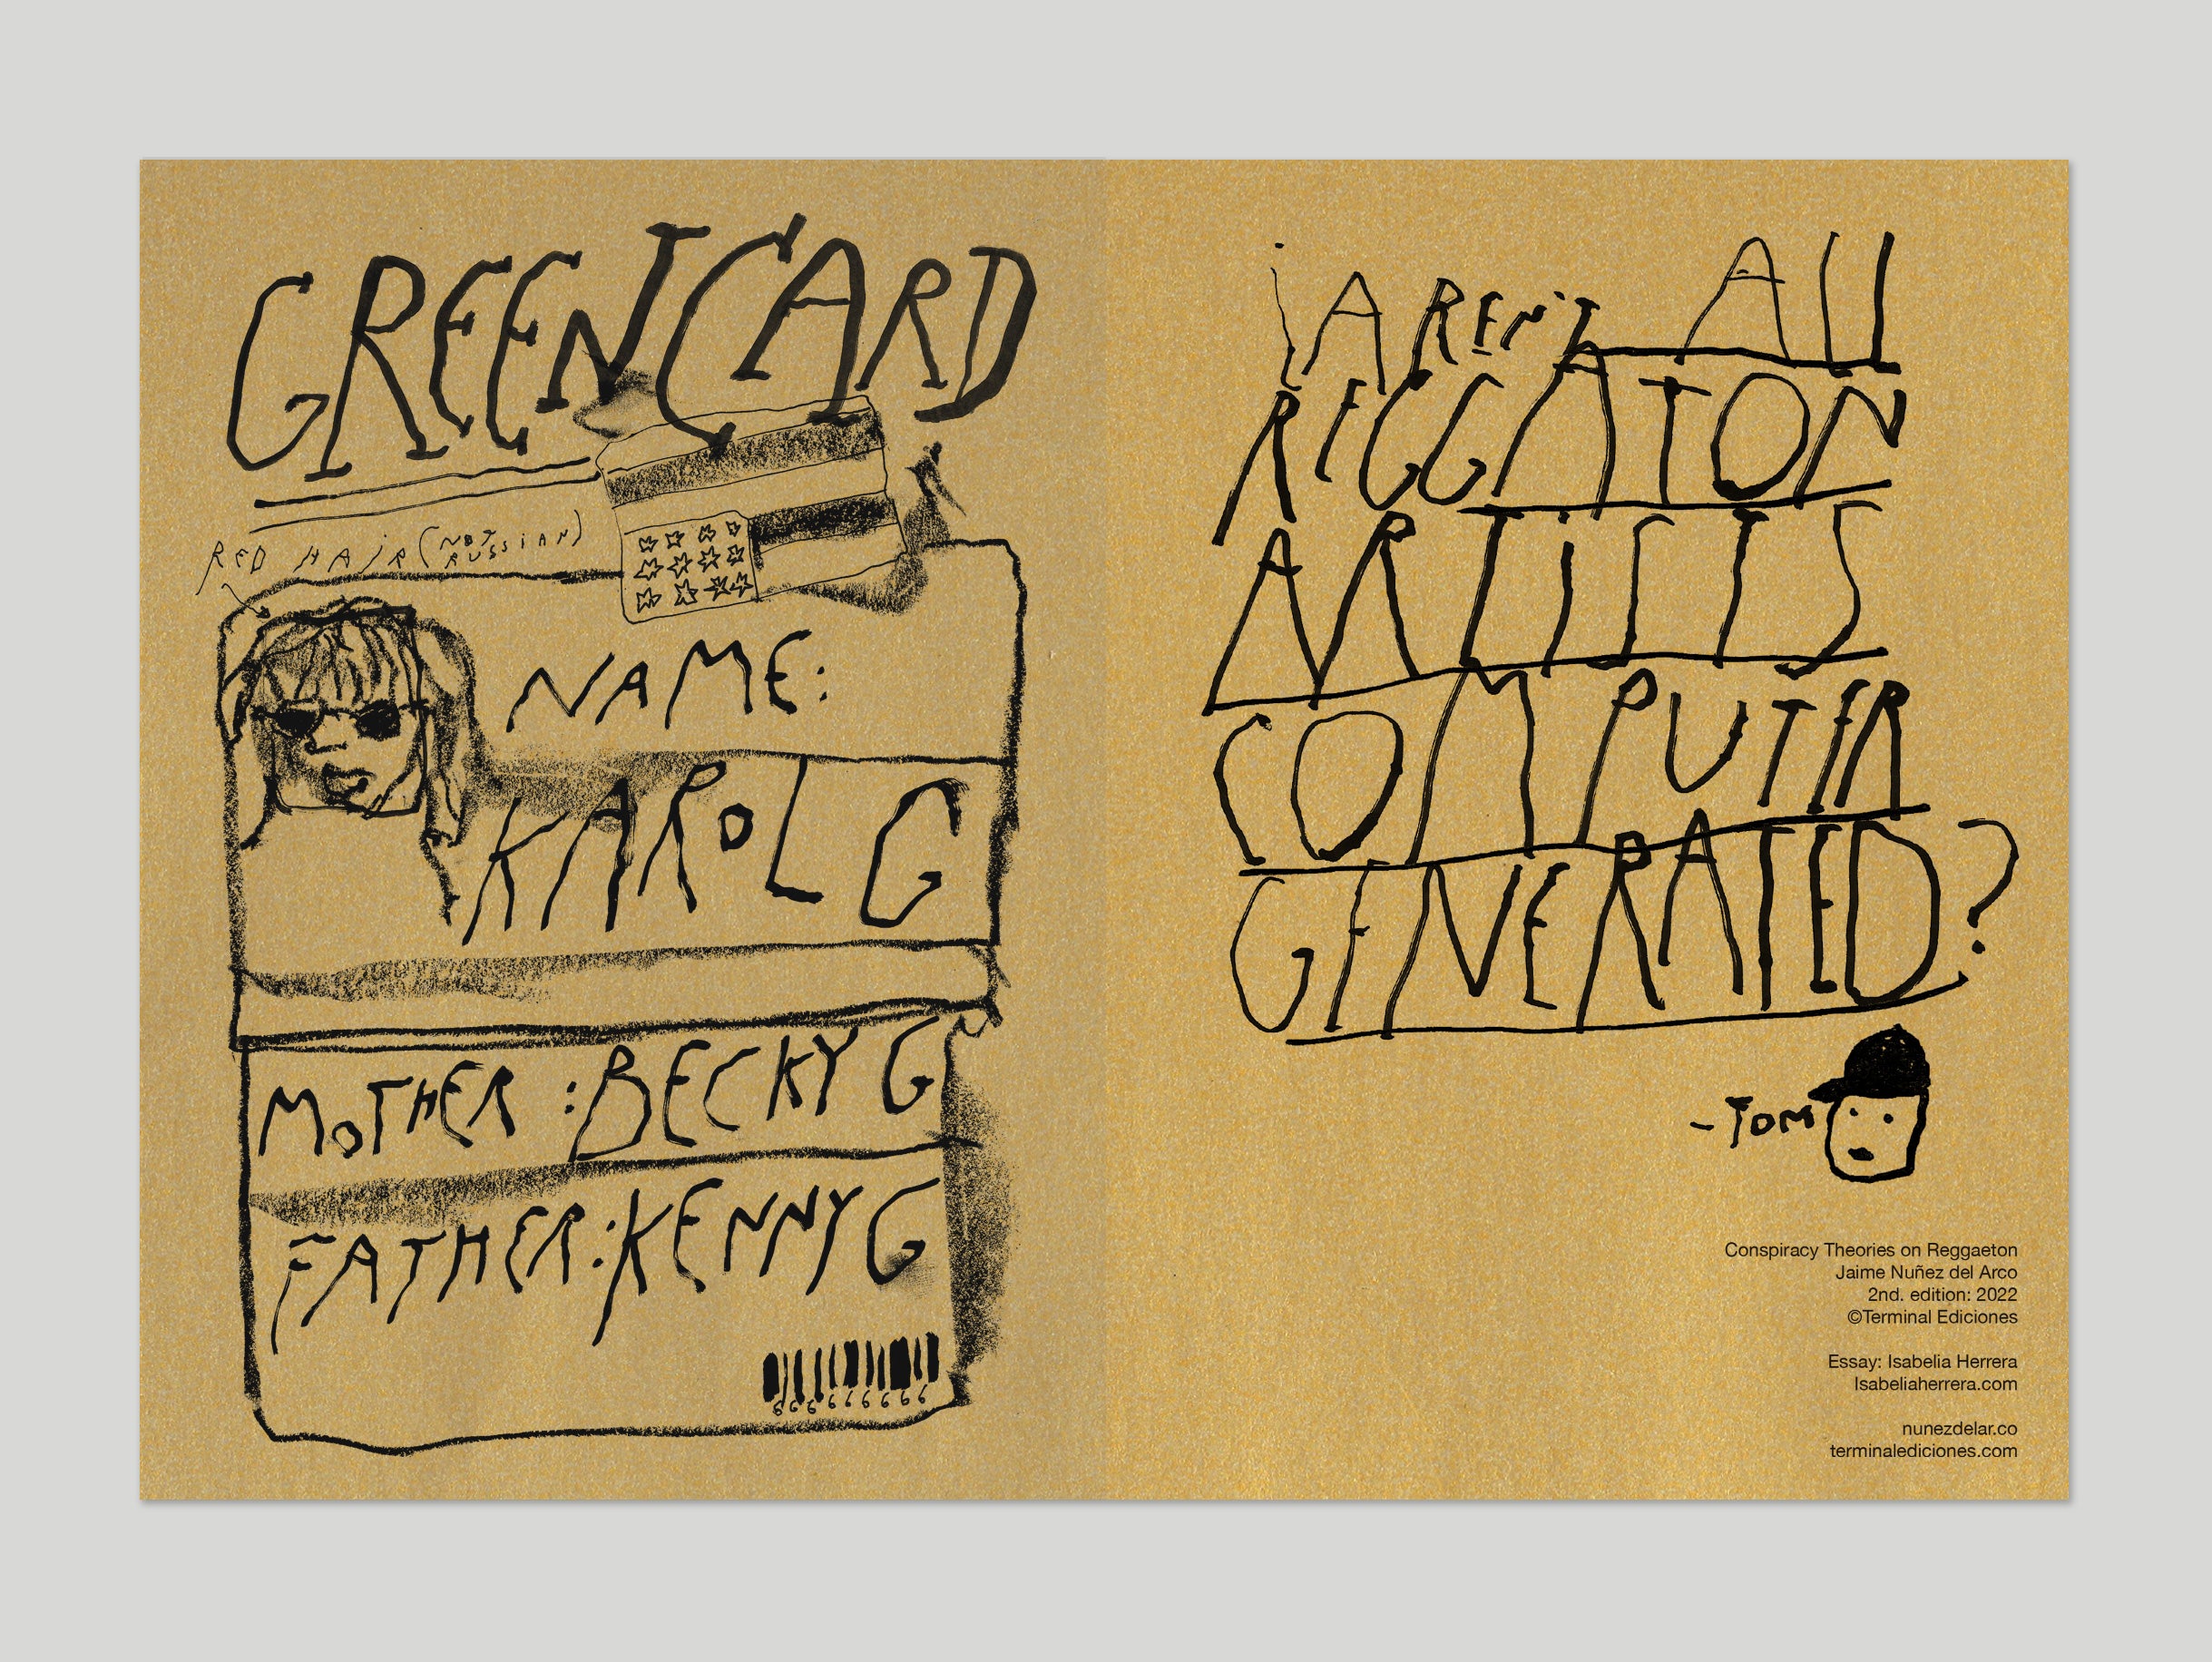 GREENCARD
RED HAIR (NOT RUSSIAN)
NAME:
KAROL G
MOTHER :BECKY G
FATHER:KENNY G
AREN'T ALL
REGGATON
ARTISTS
COMPUTER
GENERATED?
-TOM
Conspiracy Theories on Reggaeton
Jaime Nuñez del Arco
2nd. edition: 2022
©Terminal Ediciones
Essay: Isabelia Herrera
Isabeliaherrera.com
nunezdelar.co
terminalediciones.com